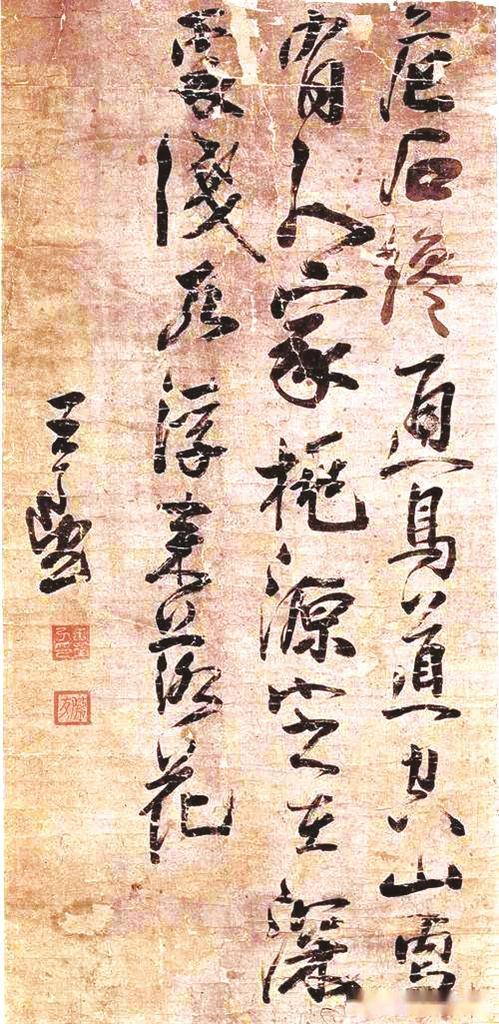 危石纔通鳥道空山更
有人家桃源定在深
處澗水浮來落花
王鐸